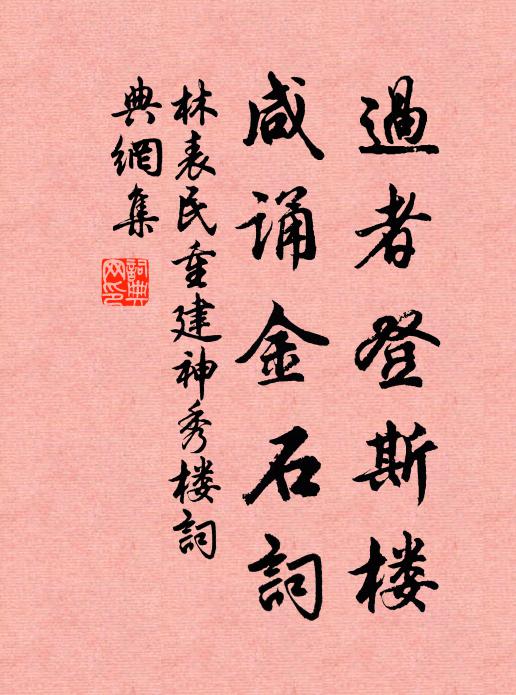 過者登斯楼
咸诵金石詞
林表民重建神秀楼詞
典網集
詞典网印